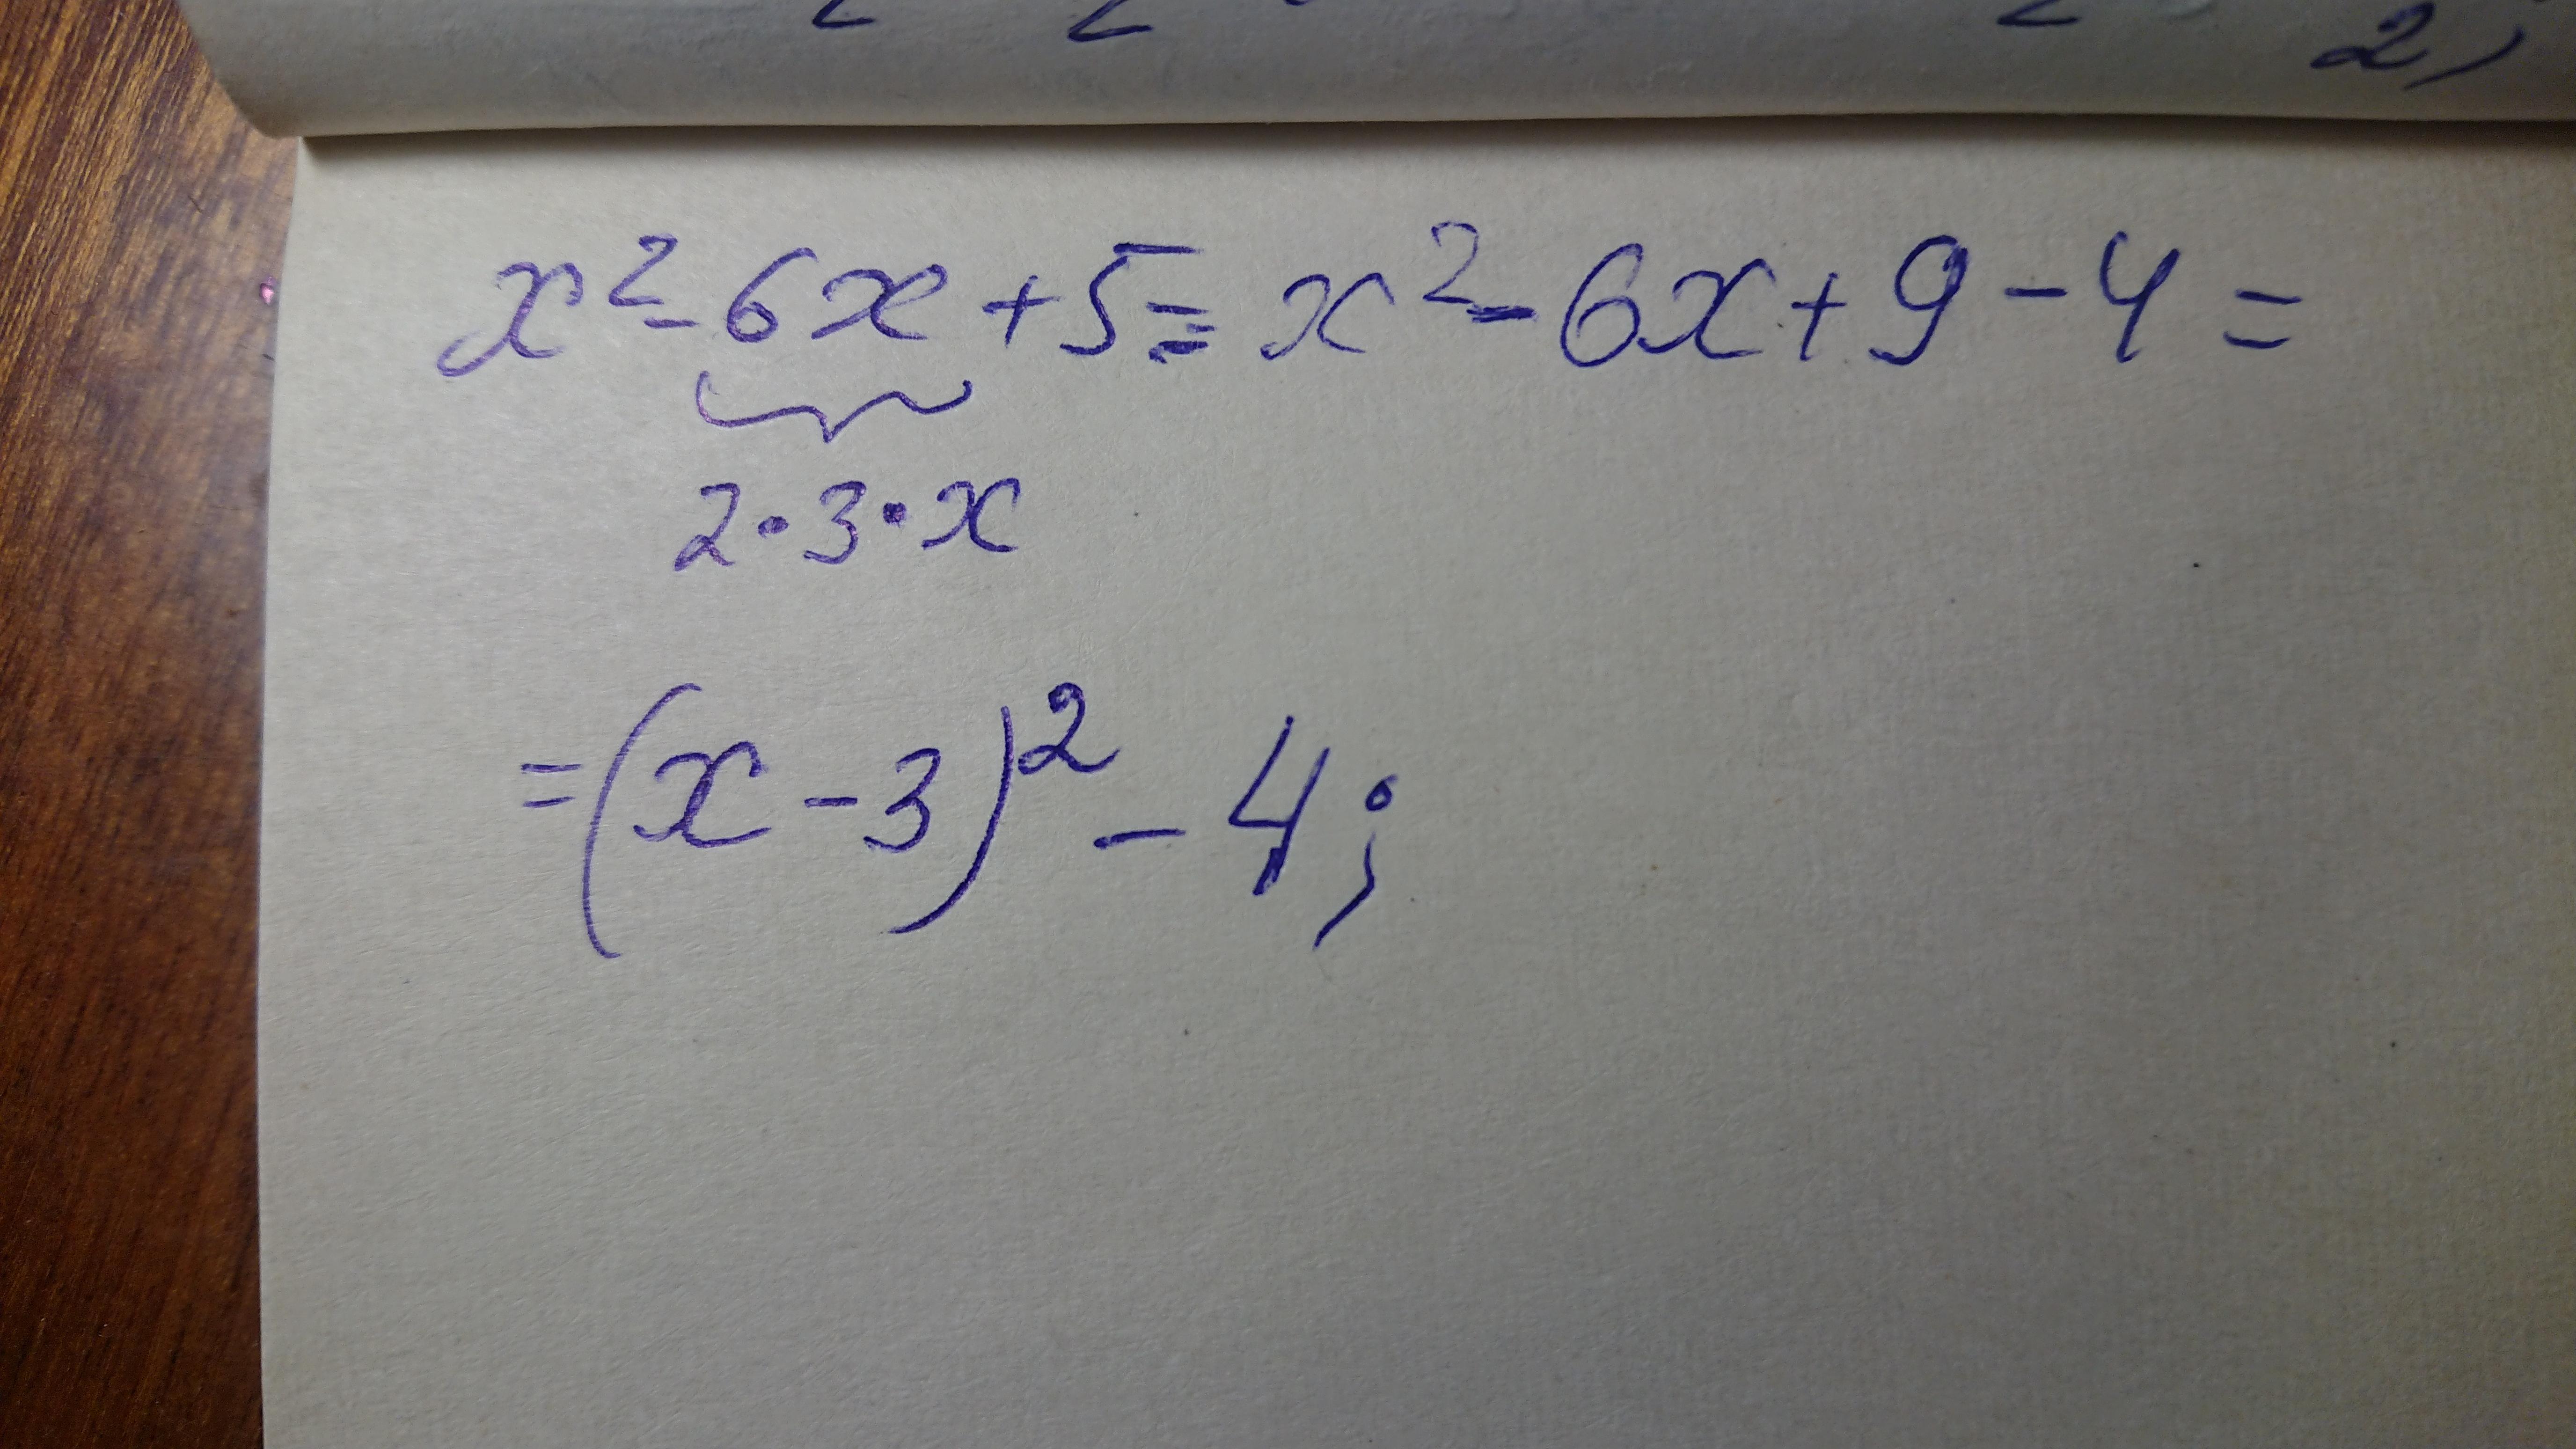 x² - 6x + 5 = x² - 6x + 9 - 4 =
2 · 3 · x
= (x - 3)² - 4;